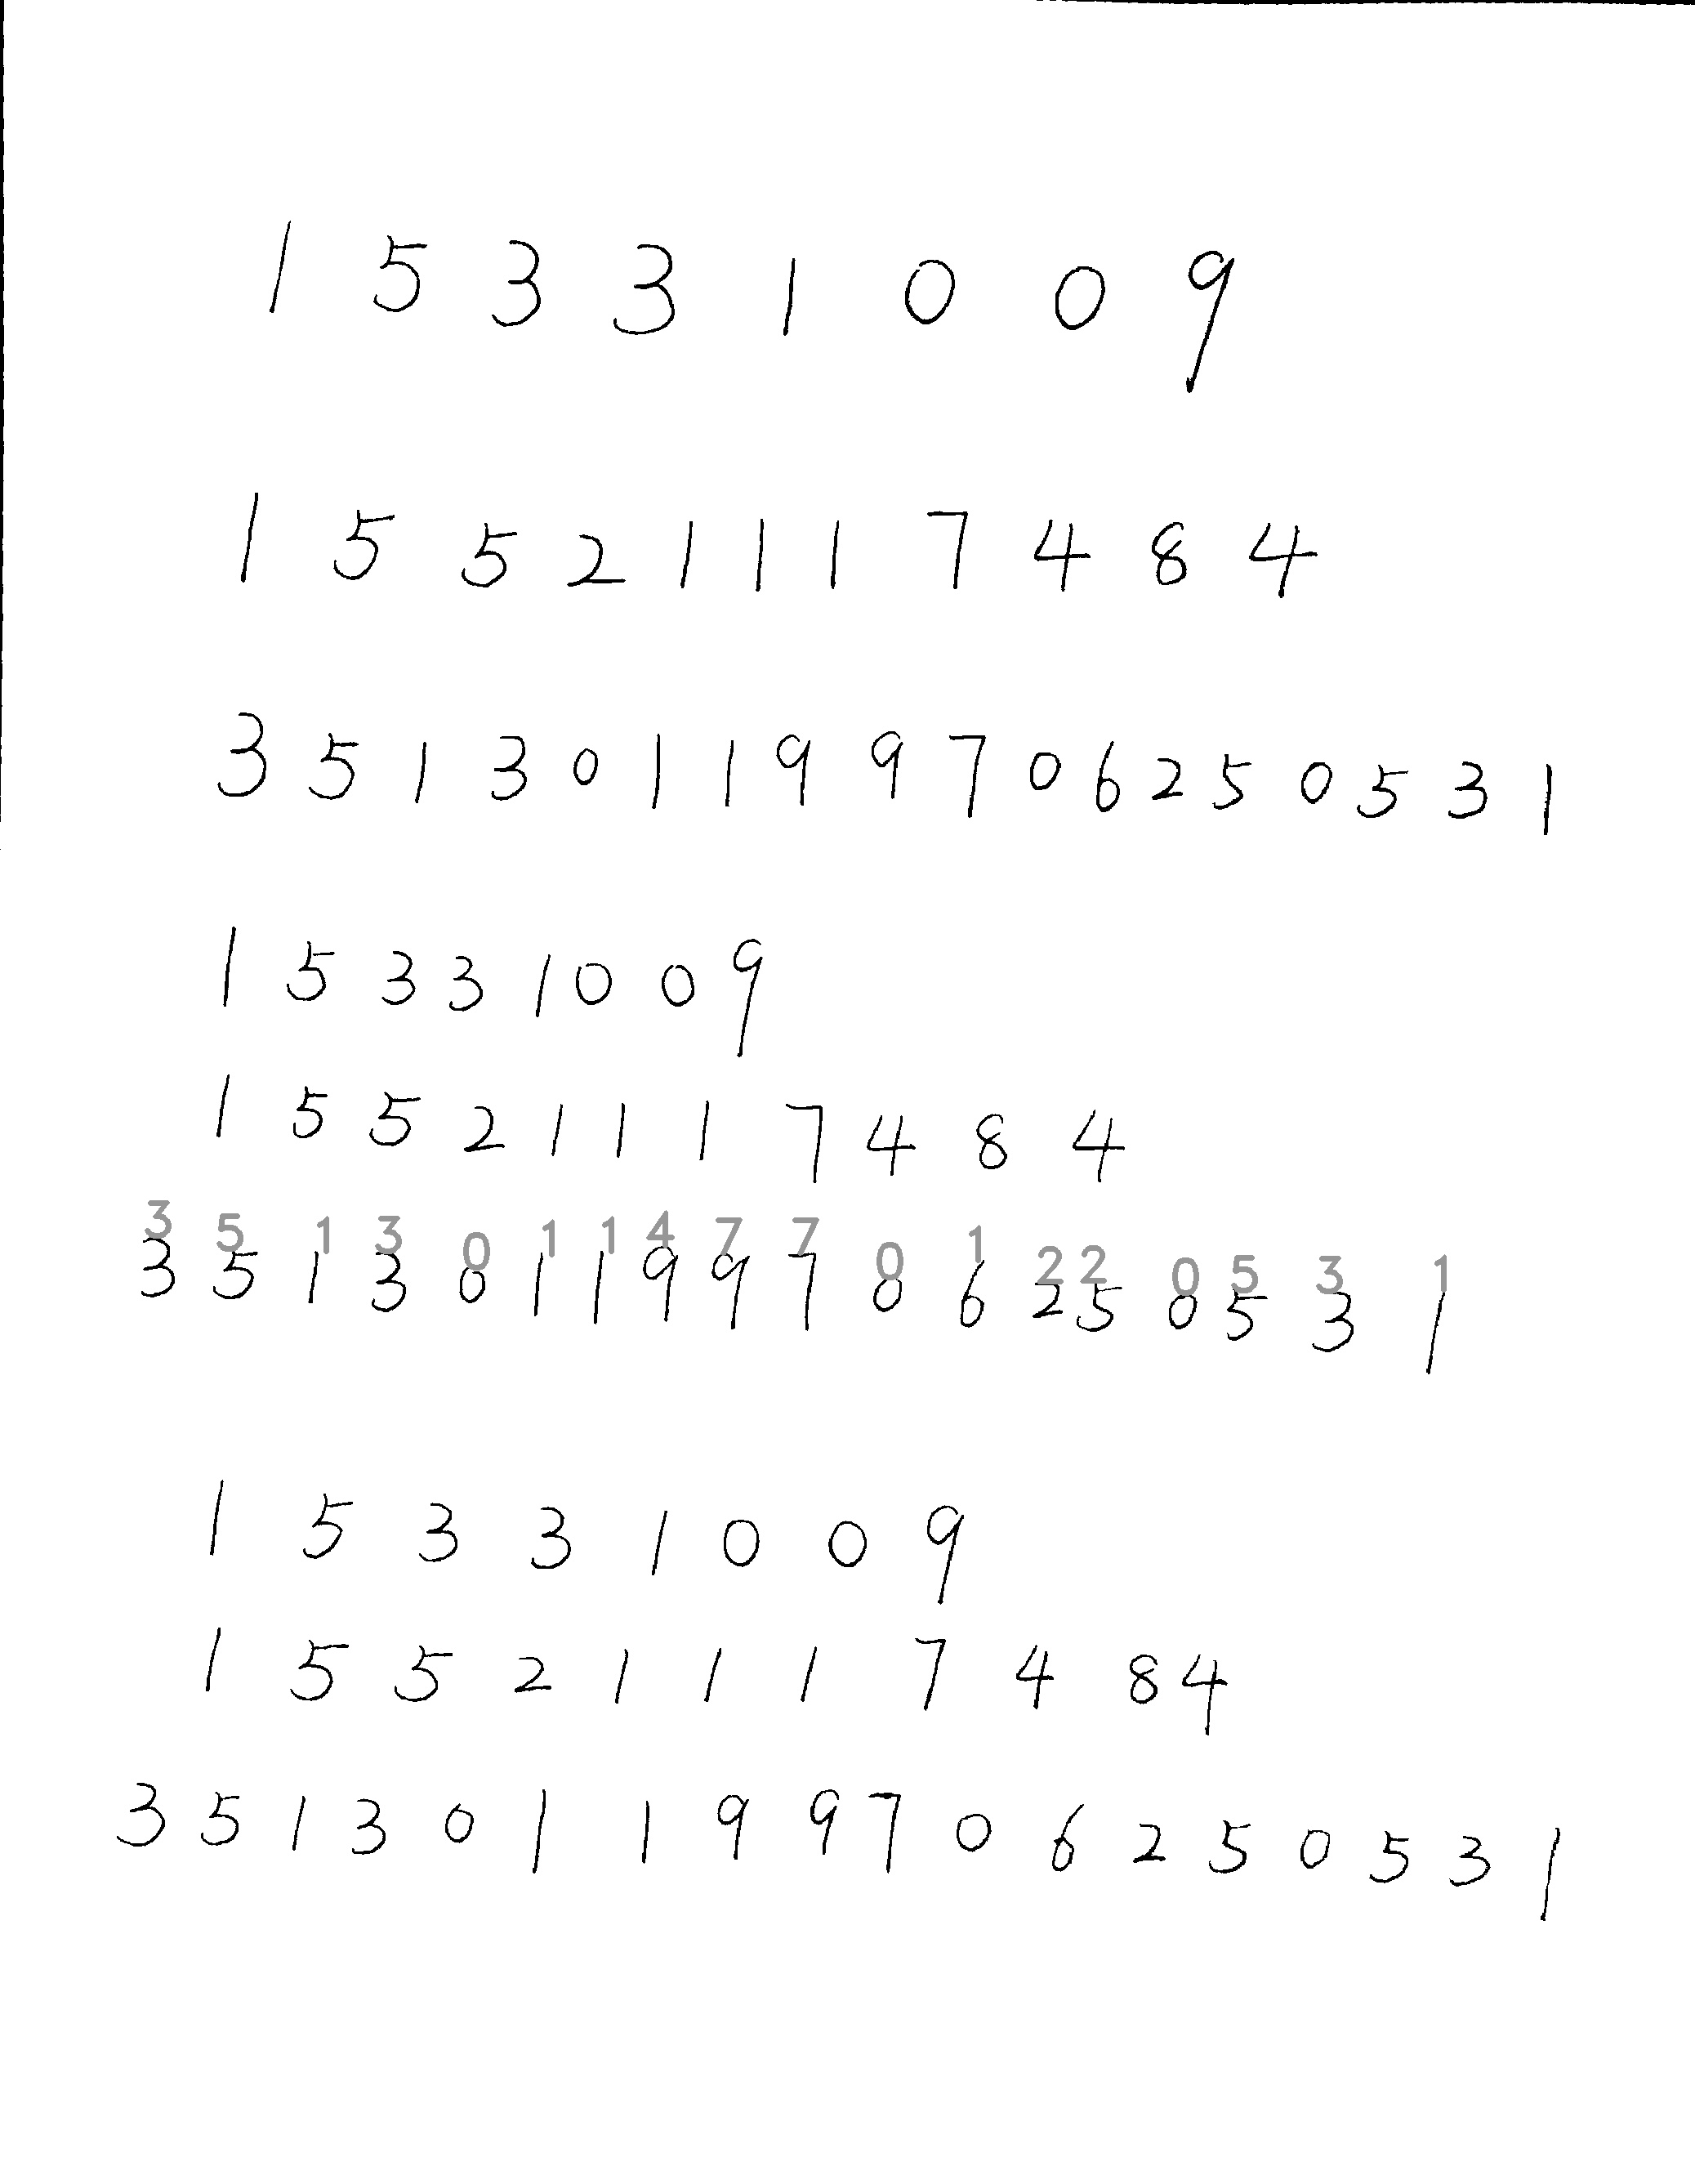 1 5 3 3 1 0 0 9
1 5 5 2 1 1 1 7 4 8 4
3 5 1 3 0 1 1 9 9 7 0 6 2 5 0 5 3 1
1 5 3 3 1 0 0 9
1 5 5 2 1 1 1 7 4 8 4
3 5 1 3 0 1 1 4 7 7 0 1 2 2 0 5 3 1
3 5 1 3 0 1 1 9 9 7 0 6 2 5 0 5 3 1
1 5 3 3 1 0 0 9
1 5 5 2 1 1 1 7 4 8 4
3 5 1 3 0 1 1 9 9 7 0 6 2 5 0 5 3 1